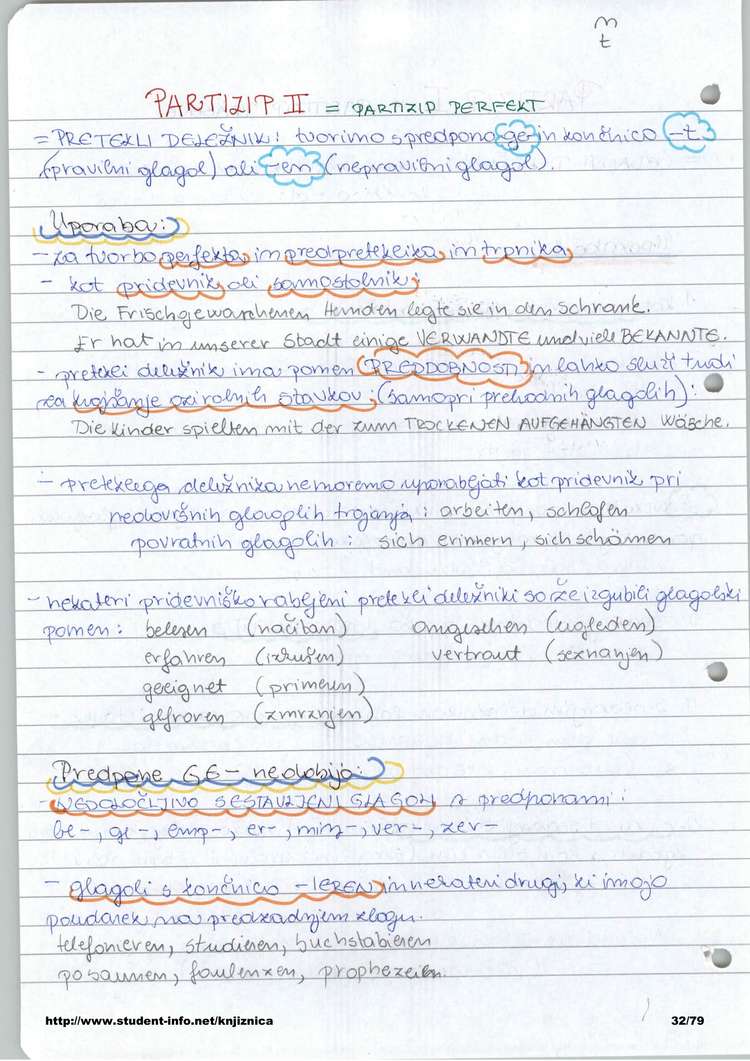 n
t
PARTIZIP II = PARTIZIP PERFEKT
= PRETEKLI DELEŽNIK: tvorimo s predpono ge- in končnico -t
(pravilni glagol) ali -en (nepravilni glagol).
Uporaba:
- za tvorbo perfekta, in predpreteklika, in trpnika
- kot pridevnik ali samostalnik:
Die Frischgewaschenen Hemden legte sie in den Schrank.
Er hat in unserer Stadt einige VERWANDTE und viele BEKANNTE.
- pretekli deležnik ima pomen PREDDOBNOSTI in lahko služi tudi
za krajšanje oziralnih stavkov, (samo pri prehodnih glagolih):
Die Kinder spielten mit der zum TROCKENEN AUFGEHÄNGTEN Wäsche.
- preteklega deležnika ne moremo uporabljati kot pridevnik pri
nedovršnih glagolih trajanja: arbeiten, schlafen
povratnih glagolih: sich erinnern, sich schämen
- nekateri pridevniško rabljeni pretekli deležniki so že izgubili glagolski
pomen: belesen (načitan) angesehen (ugleden)
erfahren (izkušen) vertraut (seznanjen)
geeignet (primeren)
gefroren (zmrznjen)
Predpone GE- ne dobijo:
- NEDOLOČLJIVO SESTAVLJENI GLAGOLI s predponami:
be-, ge-, emp-, er-, miss-, ver-, zer-
- glagoli s končnico -IEREN in nekateri drugi, ki imajo
poudarek na predzadnjem zlogu.
telefonieren, studieren, buchstabieren
posaunen, faulenzen, prophezeien.
http://www.student-info.net/knjiznica 32/79